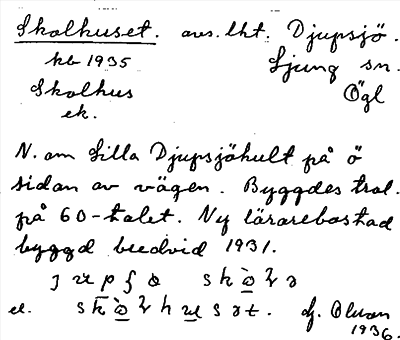 Skolhuset. avs. lht. Djupsjö.
hb 1935 Ljung sn.
Skolhus Ögl
ek.
N. om Lilla Djupsjöhult på ö
sidan av vägen. Byggdes trol.
på 60-talet. Ny lärarebostad
byggd bredvid 1931.
el.
1936.